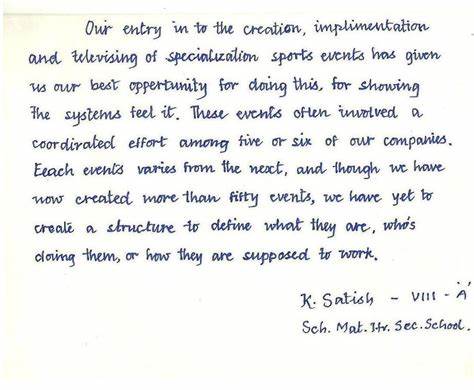 Our entry in to the creation, implimentation
and televising of specialization sports events has given
us our best opportunity for doing this, for showing
the systems feel it. These events often involved a
coordirated effort among five or six of our companies.
Eeach events varies from the next, and though we have
now created more than fifty events, we have yet to
create a structure to define what they are, who's
doing them, or how they are supposed to work.
K. Satish - VIII - 'A'
Sch. Mat. Hr. Sec. School.